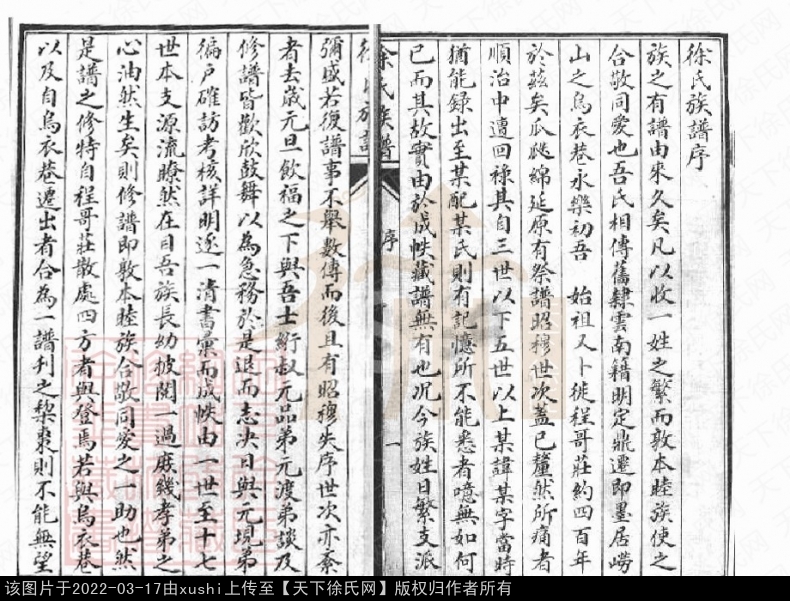 徐氏族譜序
族之有譜由來久矣凡以收一姓之繁而敦本睦族使之
合敬同愛也吾氏相傳舊隸雲南籍明定鼎遷即墨居嶗
山之烏衣巷永樂初吾 始祖又卜徙程哥莊約四百年
於茲矣瓜瓞綿延原有祭譜昭穆世次蓋已釐然所痛者
順治中遭回祿其自三世以下五世以上某諱某字當時
猶能錄出至某配某氏則有記憶所不能悉者噫無如何
已而其故實由於成帙藏譜無有也況今族姓日繁支派
徐氏族譜
序
一
彌盛若復譜事不舉數傳而後且有昭穆失序世次亦紊
者去歲元旦飲福之下與吾士絎叔元品弟元渡弟談及
修譜皆歡欣鼓舞以為急務於是退而志決日與元現弟
徧戶確訪考核詳明逐一清書彙而成帙由一世至十七
世本支源流瞭然在目吾族長幼披閱一過庶幾孝弟之
心油然生矣則修譜即敦本睦族合敬同愛之一助也然
是譜之修特自程哥莊散處四方者與登焉若與烏衣巷
以及自烏衣巷遷出者合為一譜刊之梨棗則不能無望
该图片于2022-03-17由xushi上传至【天下徐氏网】版权归作者所有